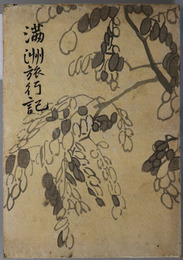 満洲旅行記